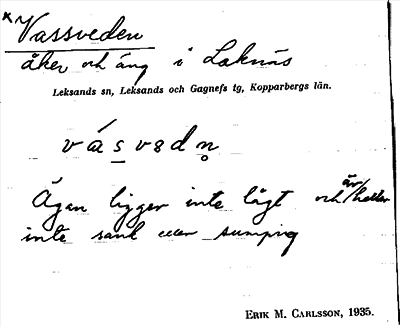 *Vassveden
åker och äng i Laknäs
Leksands sn, Leksands och Gagnefs tg, Kopparbergs län.
vás̲vedn̥
Ägan ligger inte lågt och är/heller
inte sank eller sumpig
ERIK M. CARLSSON, 1935.